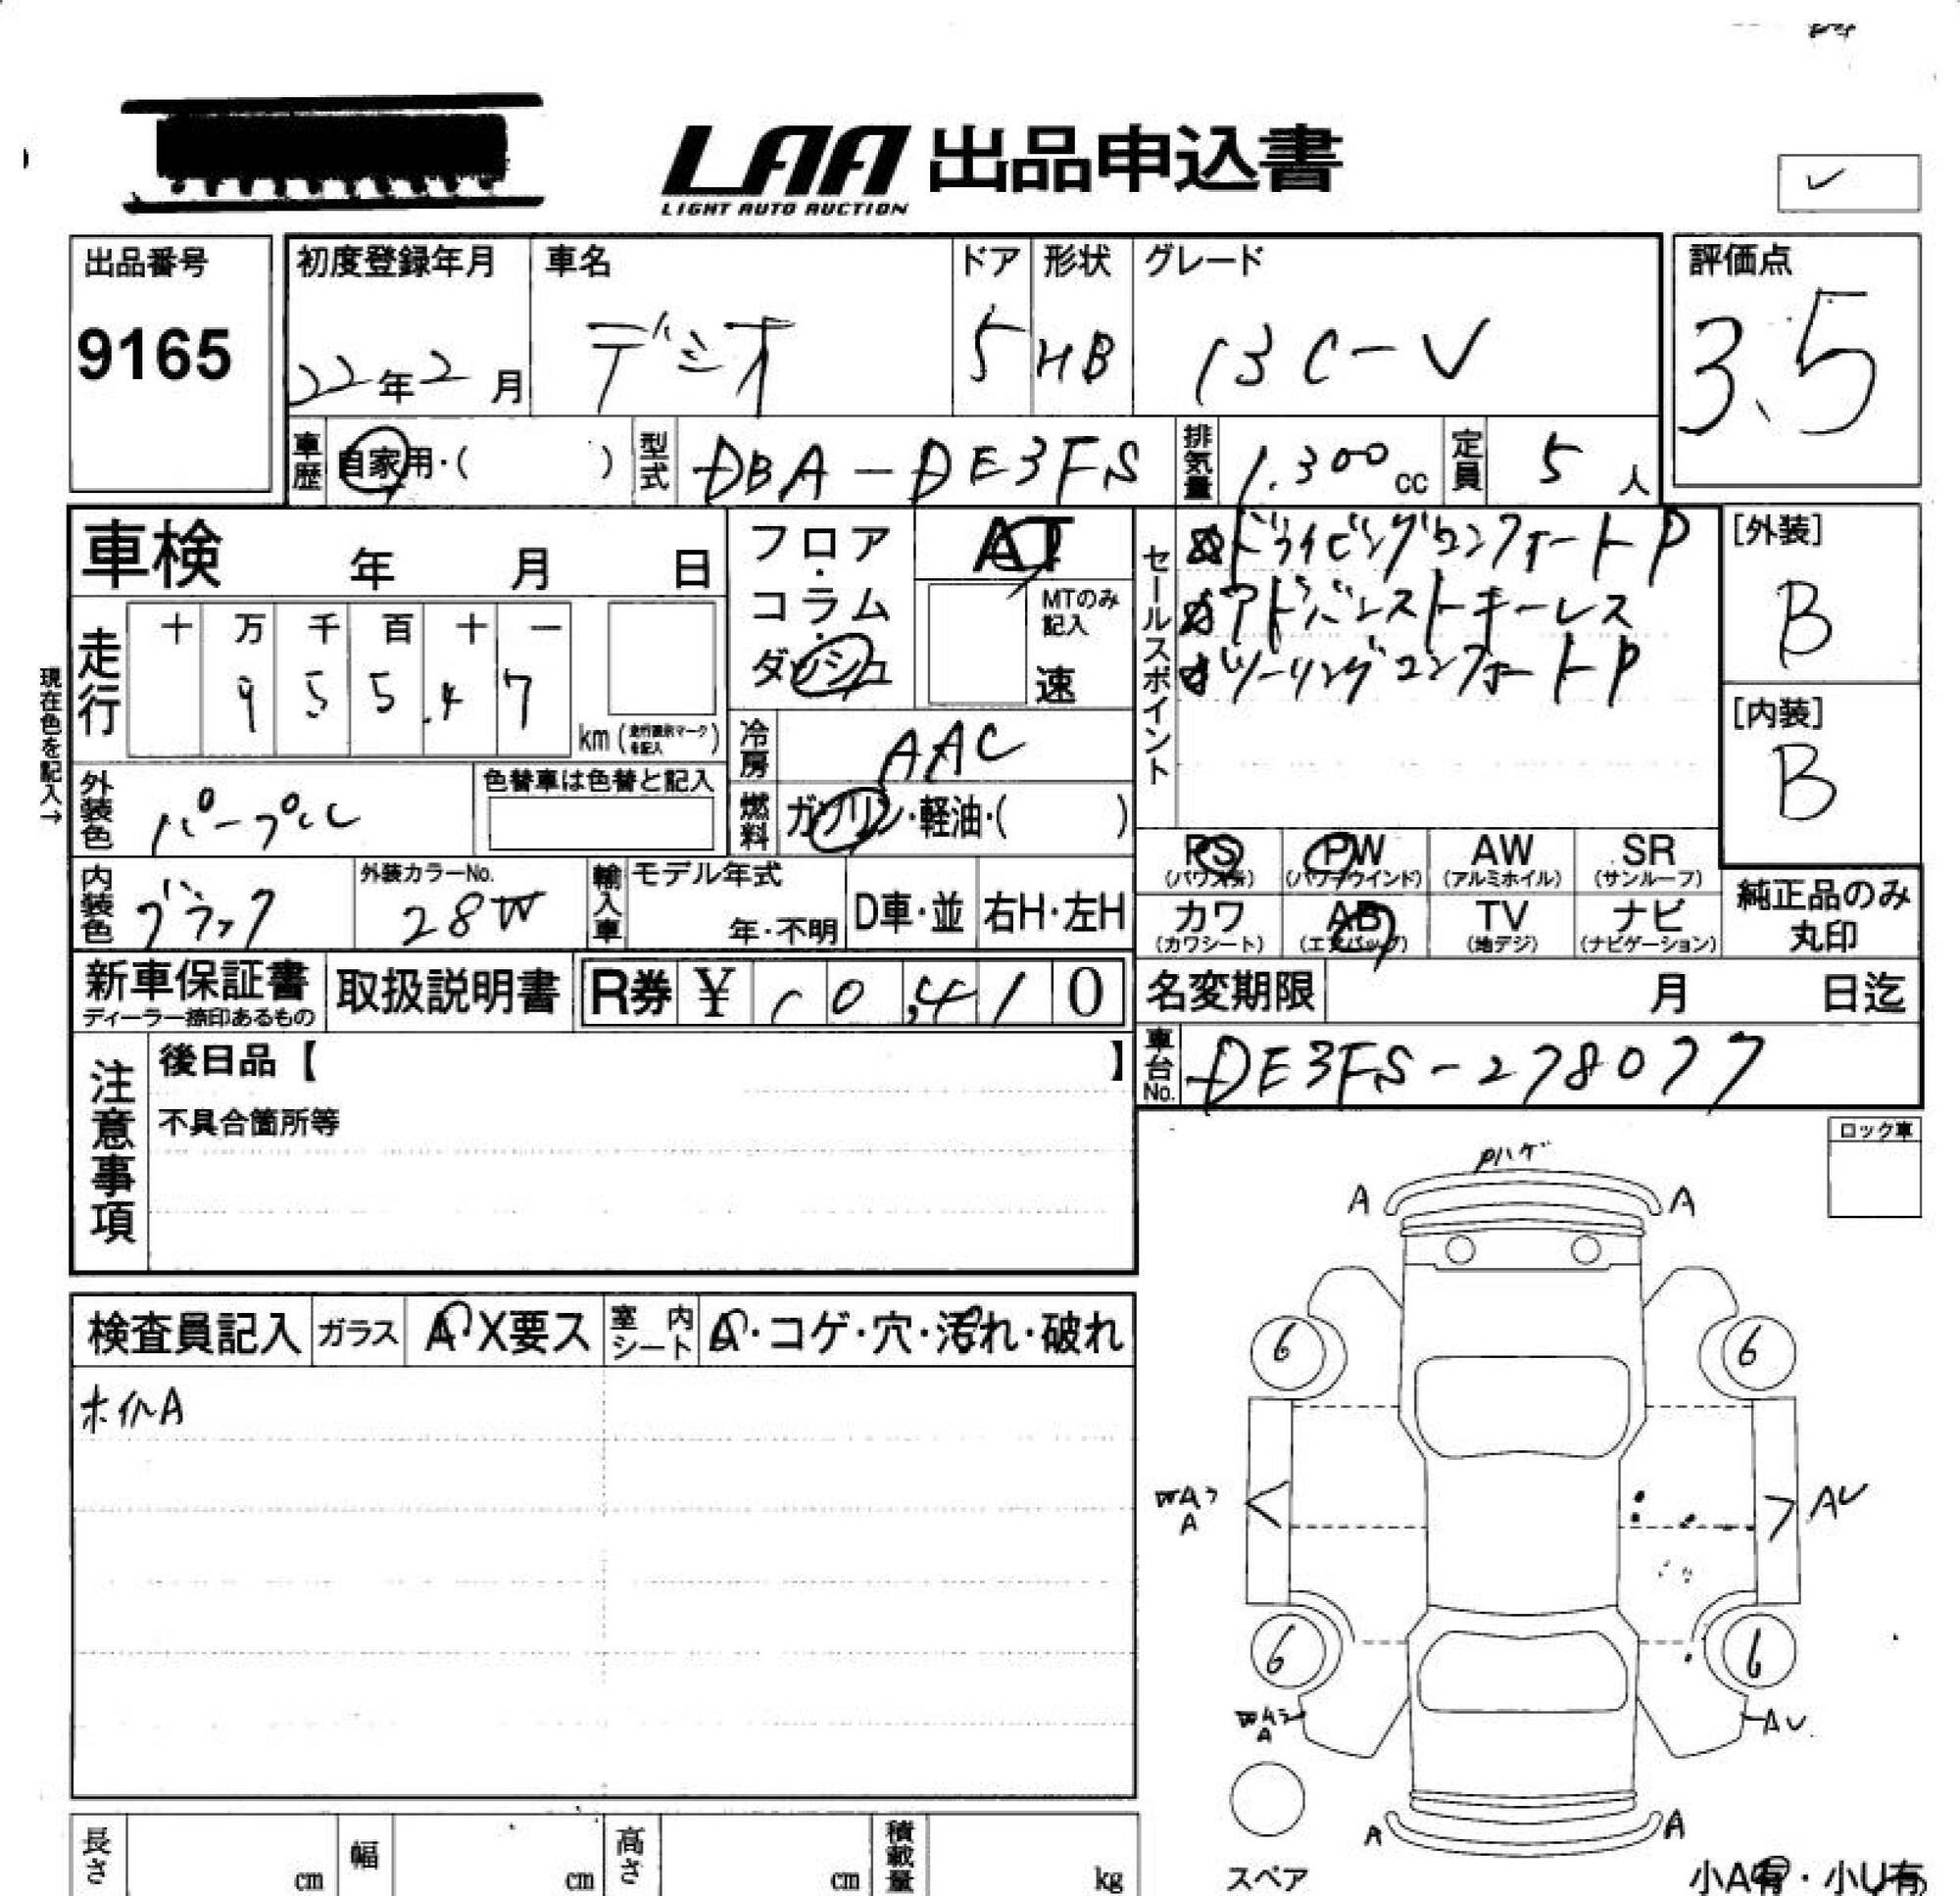 LAA 出品申込書
LIGHT AUTO AUCTION
✓
出品番号
9165
初度登録年月
22年2月
車名
デミオ
ドア
5
形状
HB
グレード
13C-V
評価点
3.5
車歴
自家用・( )
型式
DBA-DE3FS
排気量
1.300cc
定員
5人
車検 年 月 日
フロア・コラム・ダッシュ
AT
MTのみ記入
速
セールスポイント
☆ドライビングコンフォートP
☆アドバンストキーレス
☆ツーリングコンフォートP
[外装]
B
[内装]
B
現在色を記入→
走行
十 万 千 百 十 一
9 5 5.4 7
km(走行表示マークを記入)
冷房
AAC
外装色
パープル
色替車は色替と記入
燃料
ガソリン・軽油・( )
PS (パワステ)
PW (パワーウインド)
AW (アルミホイル)
SR (サンルーフ)
カワ (カワシート)
AB (エアバッグ)
TV (地デジ)
ナビ (ナビゲーション)
純正品のみ丸印
内装色
ブラック
外装カラーNo.
28W
輸入車
モデル年式
年・不明
D車・並
右H・左H
新車保証書
ディーラー捺印あるもの
取扱説明書
R券 ¥ 10,410
名変期限 月 日迄
車台No.
DE3FS-278077
注意事項
後日品【 】
不具合箇所等
ロック車
Pハゲ
A A
6 6
A
AU
6 6
A
AU
A A
スペア
小A有・小U有
検査員記入
ガラス
A・X要ス
室内シート
A・コゲ・穴・汚れ・破れ
ホイルA
長さ cm
幅 cm
高さ cm
積載量 kg